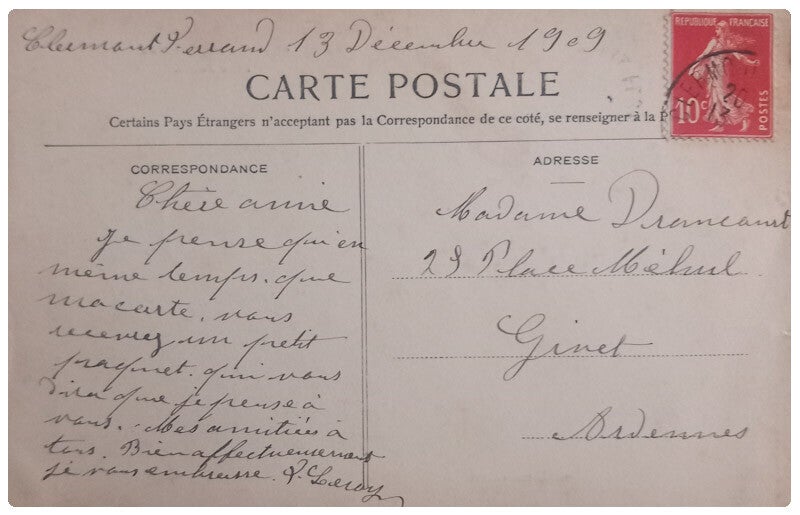 Clermont Ferrand 13 Décembre 1909
RÉPUBLIQUE FRANÇAISE
10c
POSTES
CARTE POSTALE
Certains Pays Étrangers n'acceptant pas la Correspondance de ce coté, se renseigner à la P
CORRESPONDANCE
Chère amie
Je pense qu'en
même temps que
ma carte, vous
recevrez un petit
paquet qui vous
dira que je pense à
vous. Mes amitiés à
tous. Bien affectueusement
je vous embrasse. Leroy
ADRESSE
Madame Droncourt
Place Méhul
Givet
Ardennes